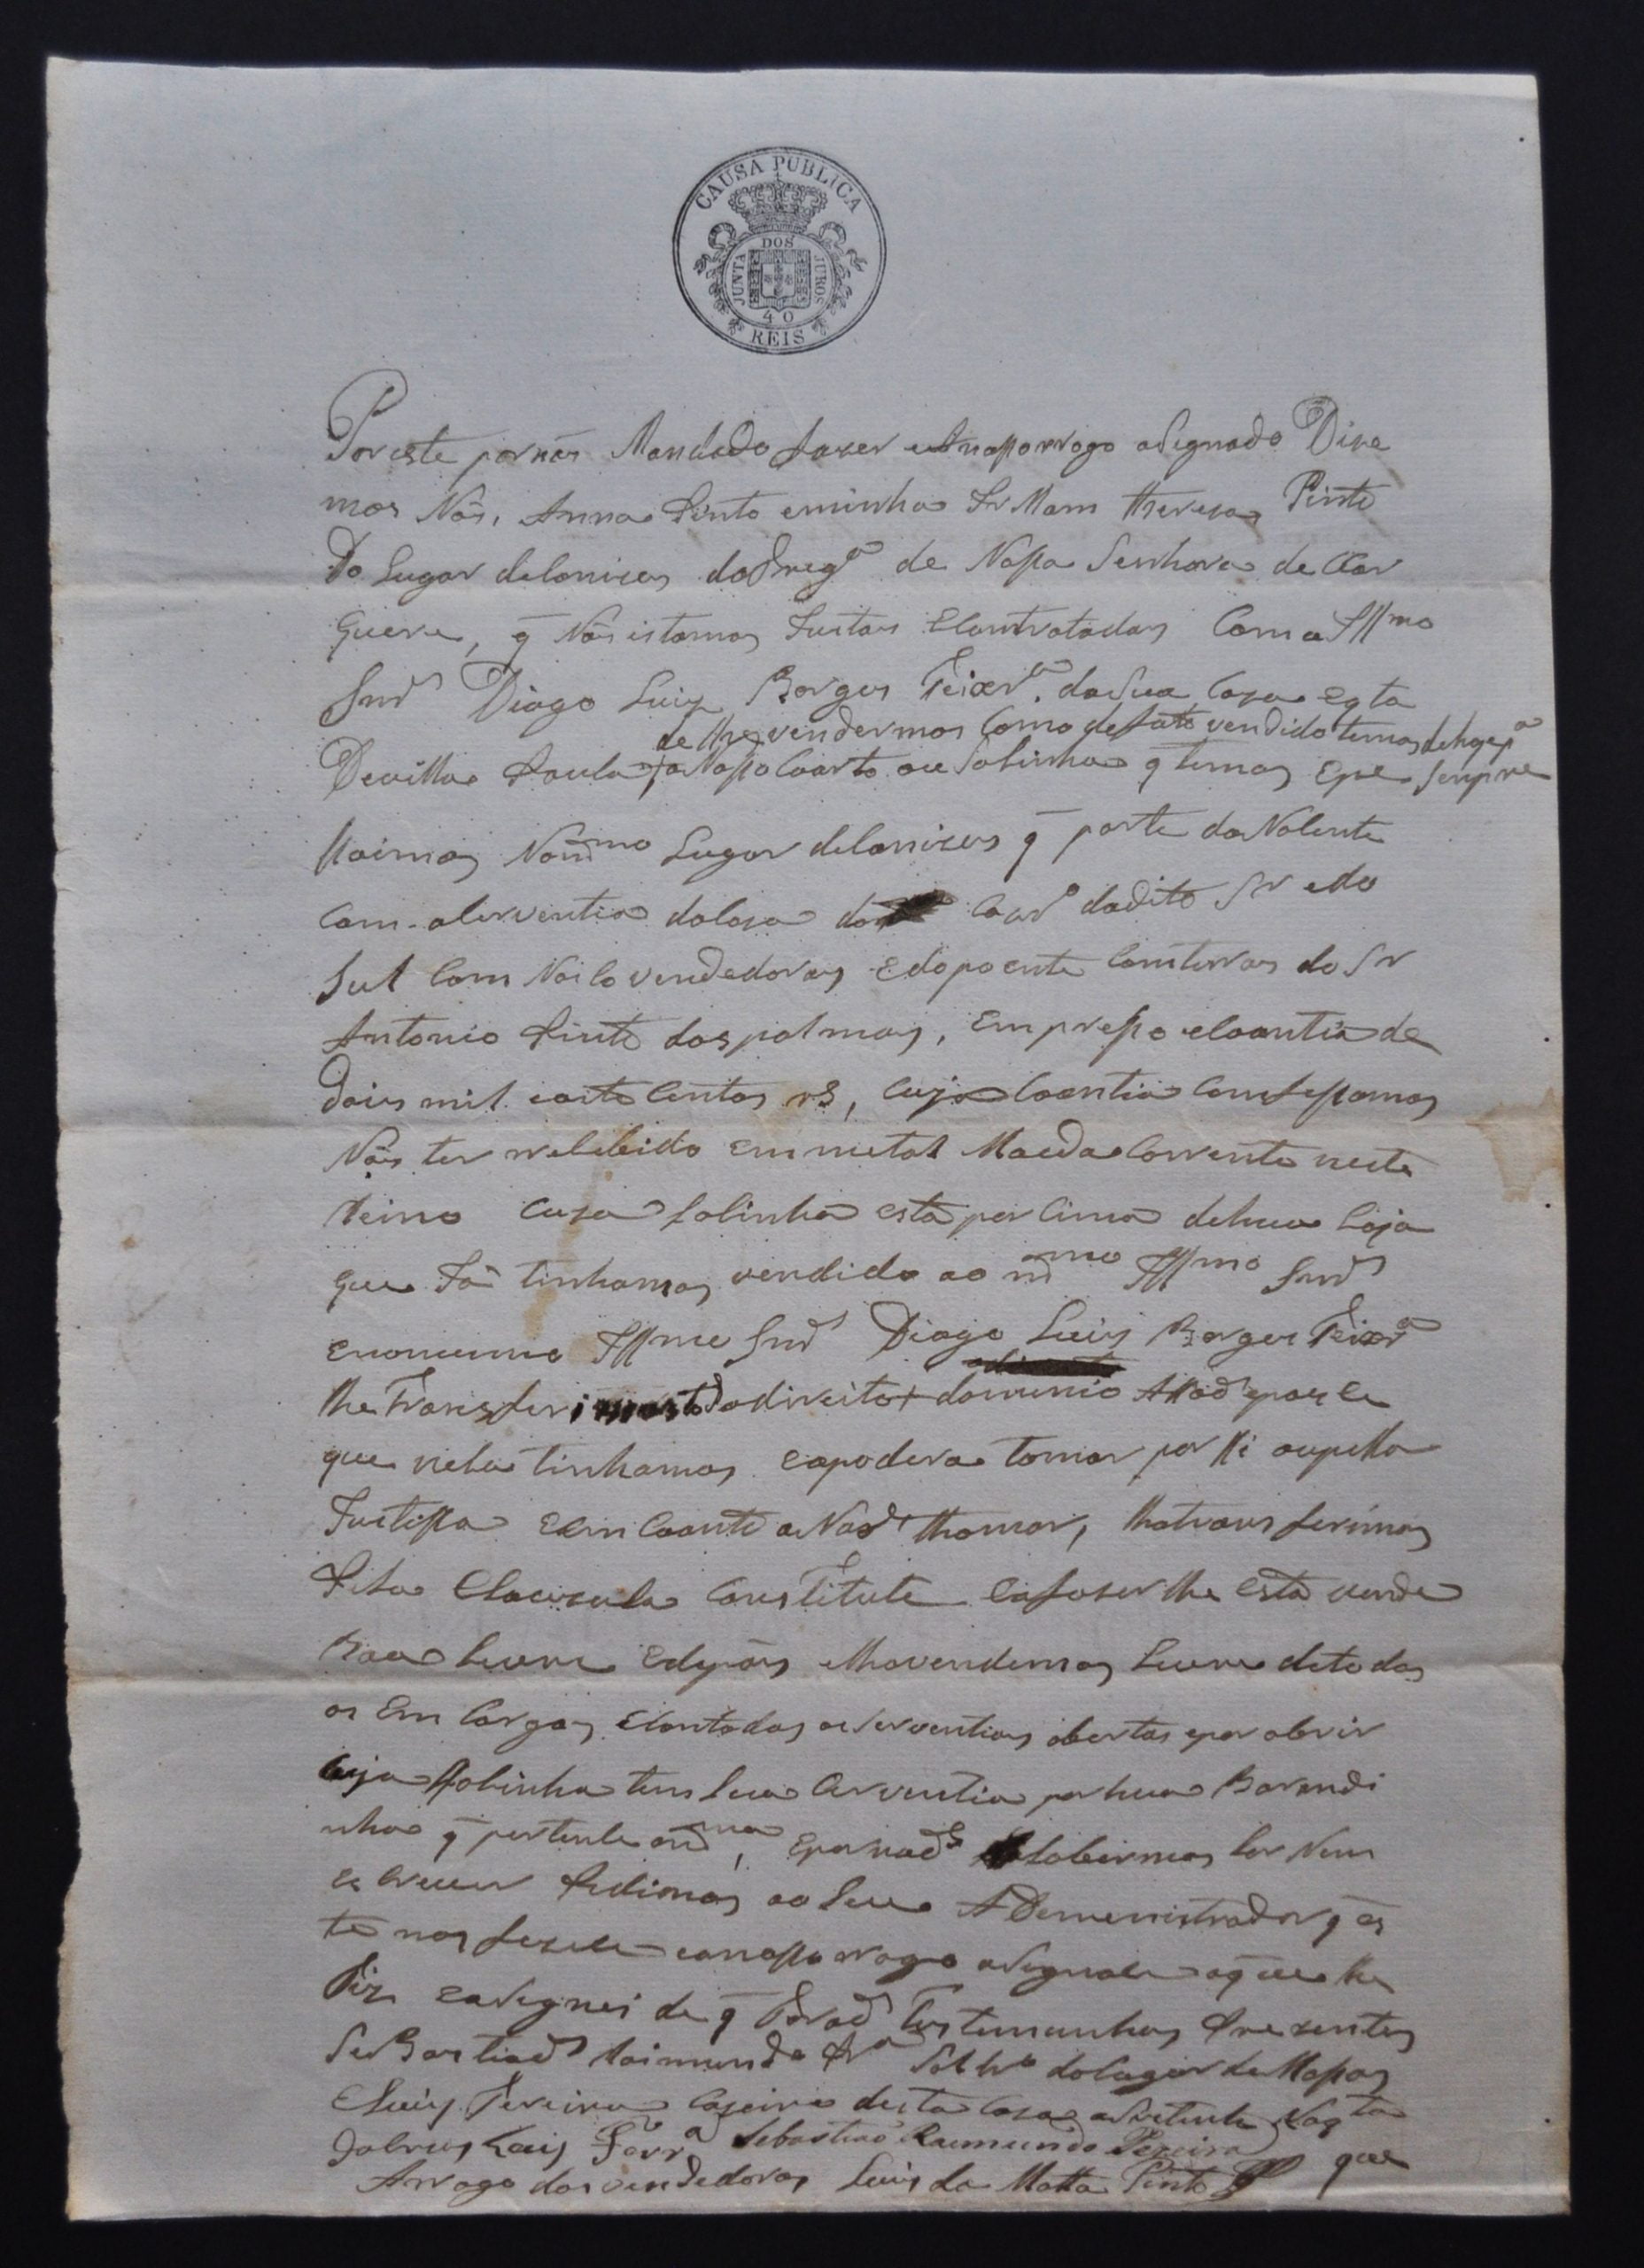 CAUSA PUBLICA
JUNTA DOS JUROS
40
REIS
Por este por nós Mandado faxer e Anosso rogo asignado Dixe
mos Nós, Anna Pinto eminha Ir Mam Thereza Pinto
Do Lugar de da Freg.ª de Nossa Senhora de Car
quere, q̃ Nós istamos Justas Contratadas Com o Ill.mo
Snr Diogo Luiz Borges Teixr.ª da Sua Caza e q.ta
de lhe vendermos Como de fato vendido temos de hoje p.ª
De villa Paula, o Nosso Coarto ou Salinha q̃ temos senpre
No m.mo Lugar de q̃ parte do Nascente
Com aserventia da Casa do dito Sr e do
Sul Com Nós vendedoras e do poente Com terras do Sr
Antonio Pinto das palmas, em presso e Coantia de
Dois mil e oito Centos rs, Cuja Coantia Comfessamos
Nós ter recebido em metal Moeda Corrente neste
Reino Cuja Salinha está por Cima de hua Loja
que Já tinhamos vendido ao m.mo Ill.mo Snr
e no mesmo Ill.mo Snr Diogo Luiz Borges Teixr.ª
lhe Transferimos todo odireito + dominio
que nela tinhamos e a podera tomar por si ou pella
Justissa e em Coanto a Não thomar, lha transferimos
Pela Clauzula Constitute e afazer lhe esta venda
Boa e de pás e lha vendemos Livre de todos
os em Cargos e Com todas as serventias abertas e por abrir
Cuja Salinha tem sua Cerventia por hua Barandi
nha q̃ pertence á m.ma, e por não sabermos Ler Nem
es Crever Pedimos ao Seu Administrador q̃ es
te nos fizece e a nosso rogo asignace o que lhe
Fiz e asignei de q̃ Forão Testemunhas Prezentes
SeBastião Raimundo Pr.ª do Lugar de Massas
e Luiz Pereira Cazeiro desta Caza
Luis Sebastião Raimundo Pereira
Arrogo das vendedoras Luis da Motta Pinto que